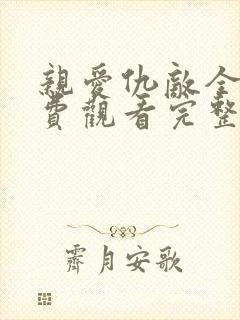 親愛仇敵全
費觀看完整
霽月安歌